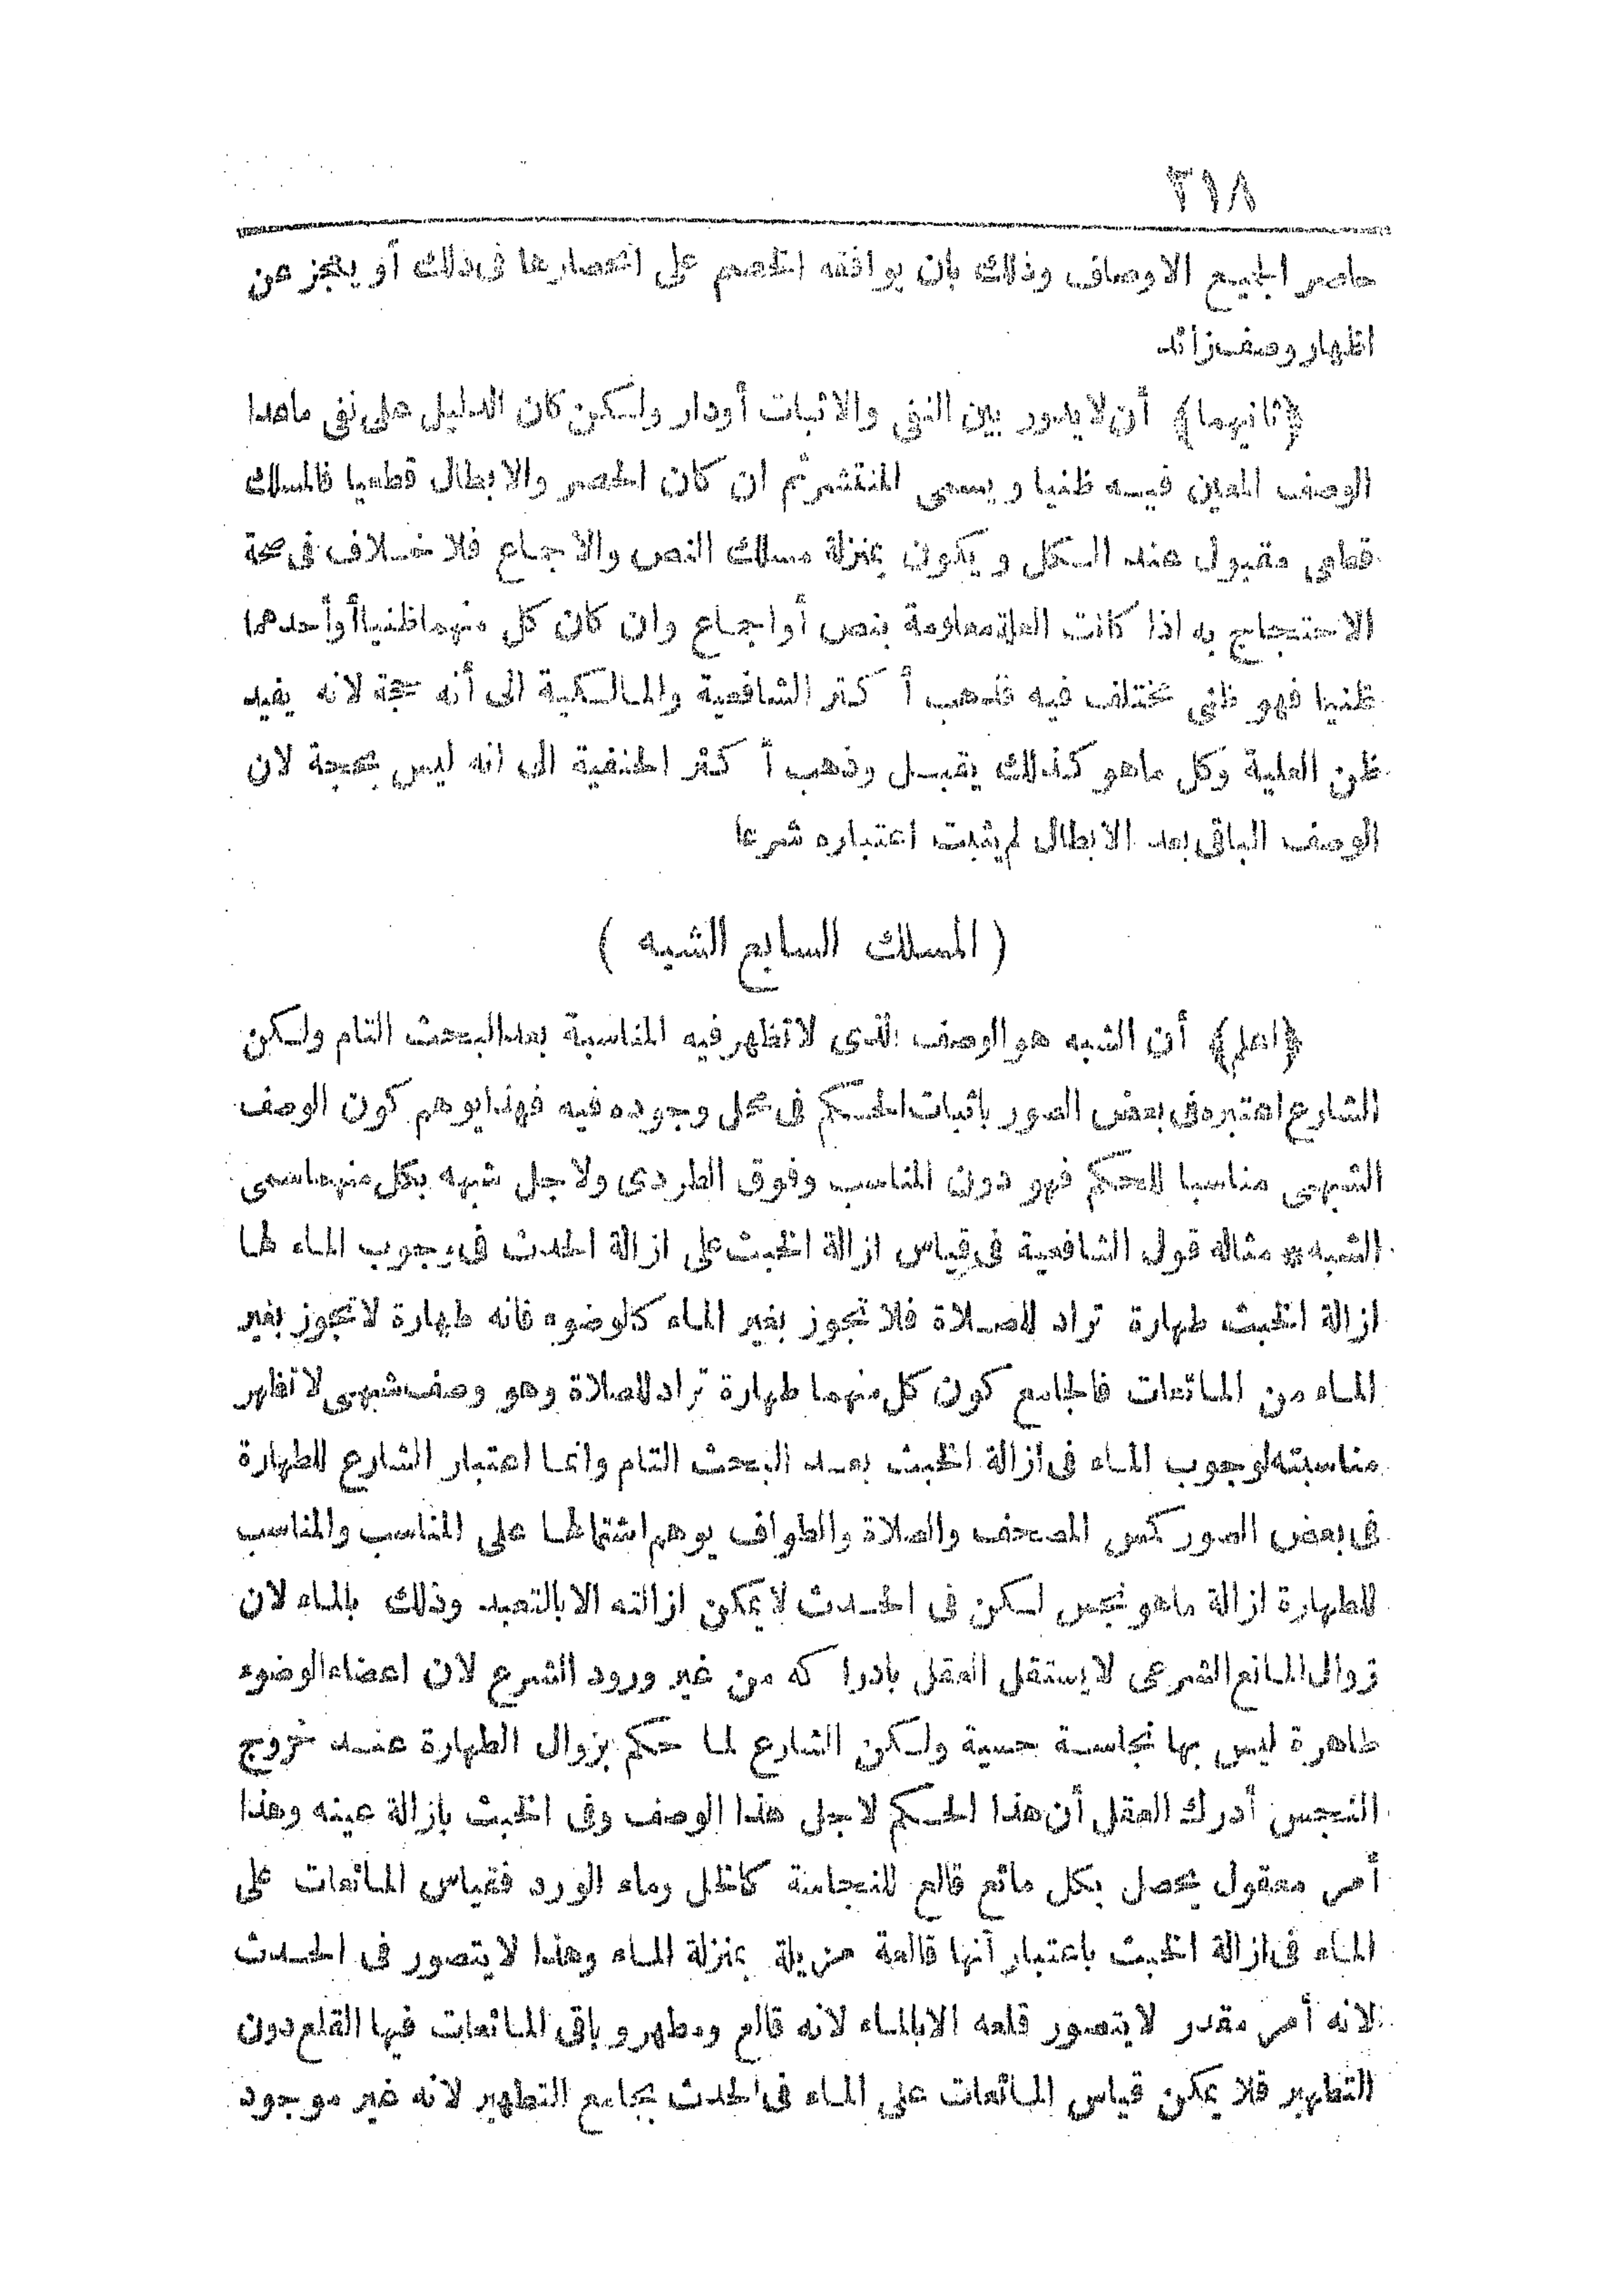 ٣١٨
حاصر الجميع الاوصاف وذلك بان يوافقه الخصم على انحصارها فى ذلك أو يعجز عن
اظهار وصف زائد
﴿ثانيهما﴾ أن لا يدور بين النفى والاثبات أودار ولكن كان الدليل على نفى ماعدا
الوصف المعين فيه ظنيا ويسمى المنتشر ثم ان كان الحصر والابطال قطعيا فالمسلك
قطعى مقبول عند الكل ويكون بمنزلة مسلك النص والاجماع فلا خلاف فى صحة
الاحتجاج به اذا كانت العلة معلومة بنص أو اجماع وان كان كل منهما ظنيا أو أحدهما
ظنيا فهو ظنى مختلف فيه فذهب أكثر الشافعية والمالكية الى أنه حجة لانه يفيد
ظن العلية وكل ماهو كذلك يقبل وذهب أكثر الحنفية الى انه ليس بحجة لان
الوصف الباقى بعد الابطال لم يثبت اعتباره شرعا
( المسلك السابع الشبه )
﴿اعلم﴾ أن الشبه هو الوصف الذى لا تظهر فيه المناسبة بعد البحث التام ولكن
الشارع اعتبره فى بعض الصور باثبات الحكم فى محل وجوده فيه فهذا يوهم كون الوصف
الشبهى مناسبا للحكم فهو دون المناسب وفوق الطردى ولاجل شبهه بكل منهما سمى
الشبه * مثاله قول الشافعية فى قياس ازالة الخبث على ازالة الحدث فى وجوب الماء لها
ازالة الخبث طهارة تراد للصلاة فلا تجوز بغير الماء كالوضوء فانه طهارة لا تجوز بغير
الماء من المائعات فالجامع كون كل منهما طهارة تراد للصلاة وهو وصف شبهى لا تظهر
مناسبته لوجوب الماء فى ازالة الخبث بعد البحث التام وانما اعتبار الشارع للطهارة
فى بعض الصور كمس المصحف والصلاة والطواف يوهم اشتمالها على المناسب والمناسب
للطهارة ازالة ماهو نجس لكن فى الحدث لا يمكن ازالته الا بالتعبد وذلك بالماء لان
زوال المانع الشرعى لا يستقل العقل بادراكه من غير ورود الشرع لان اعضاء الوضوء
طاهرة ليس بها نجاسة حسية ولكن الشارع لما حكم بزوال الطهارة عند خروج
النجس أدرك العقل أن هذا الحكم لاجل هذا الوصف وفى الخبث بازالة عينه وهذا
أمر معقول يحصل بكل مائع قالع للنجاسة كالخل وماء الورد فقياس المائعات على
الماء فى ازالة الخبث باعتبار أنها قالعة مزيلة بمنزلة الماء وهذا لا يتصور فى الحدث
لانه أمر مقدر لا يتصور قلعه الا بالماء لانه قالع ومطهر وباقى المائعات فيها القلع دون
التطهير فلا يمكن قياس المائعات على الماء فى الحدث بجامع التطهير لانه غير موجود